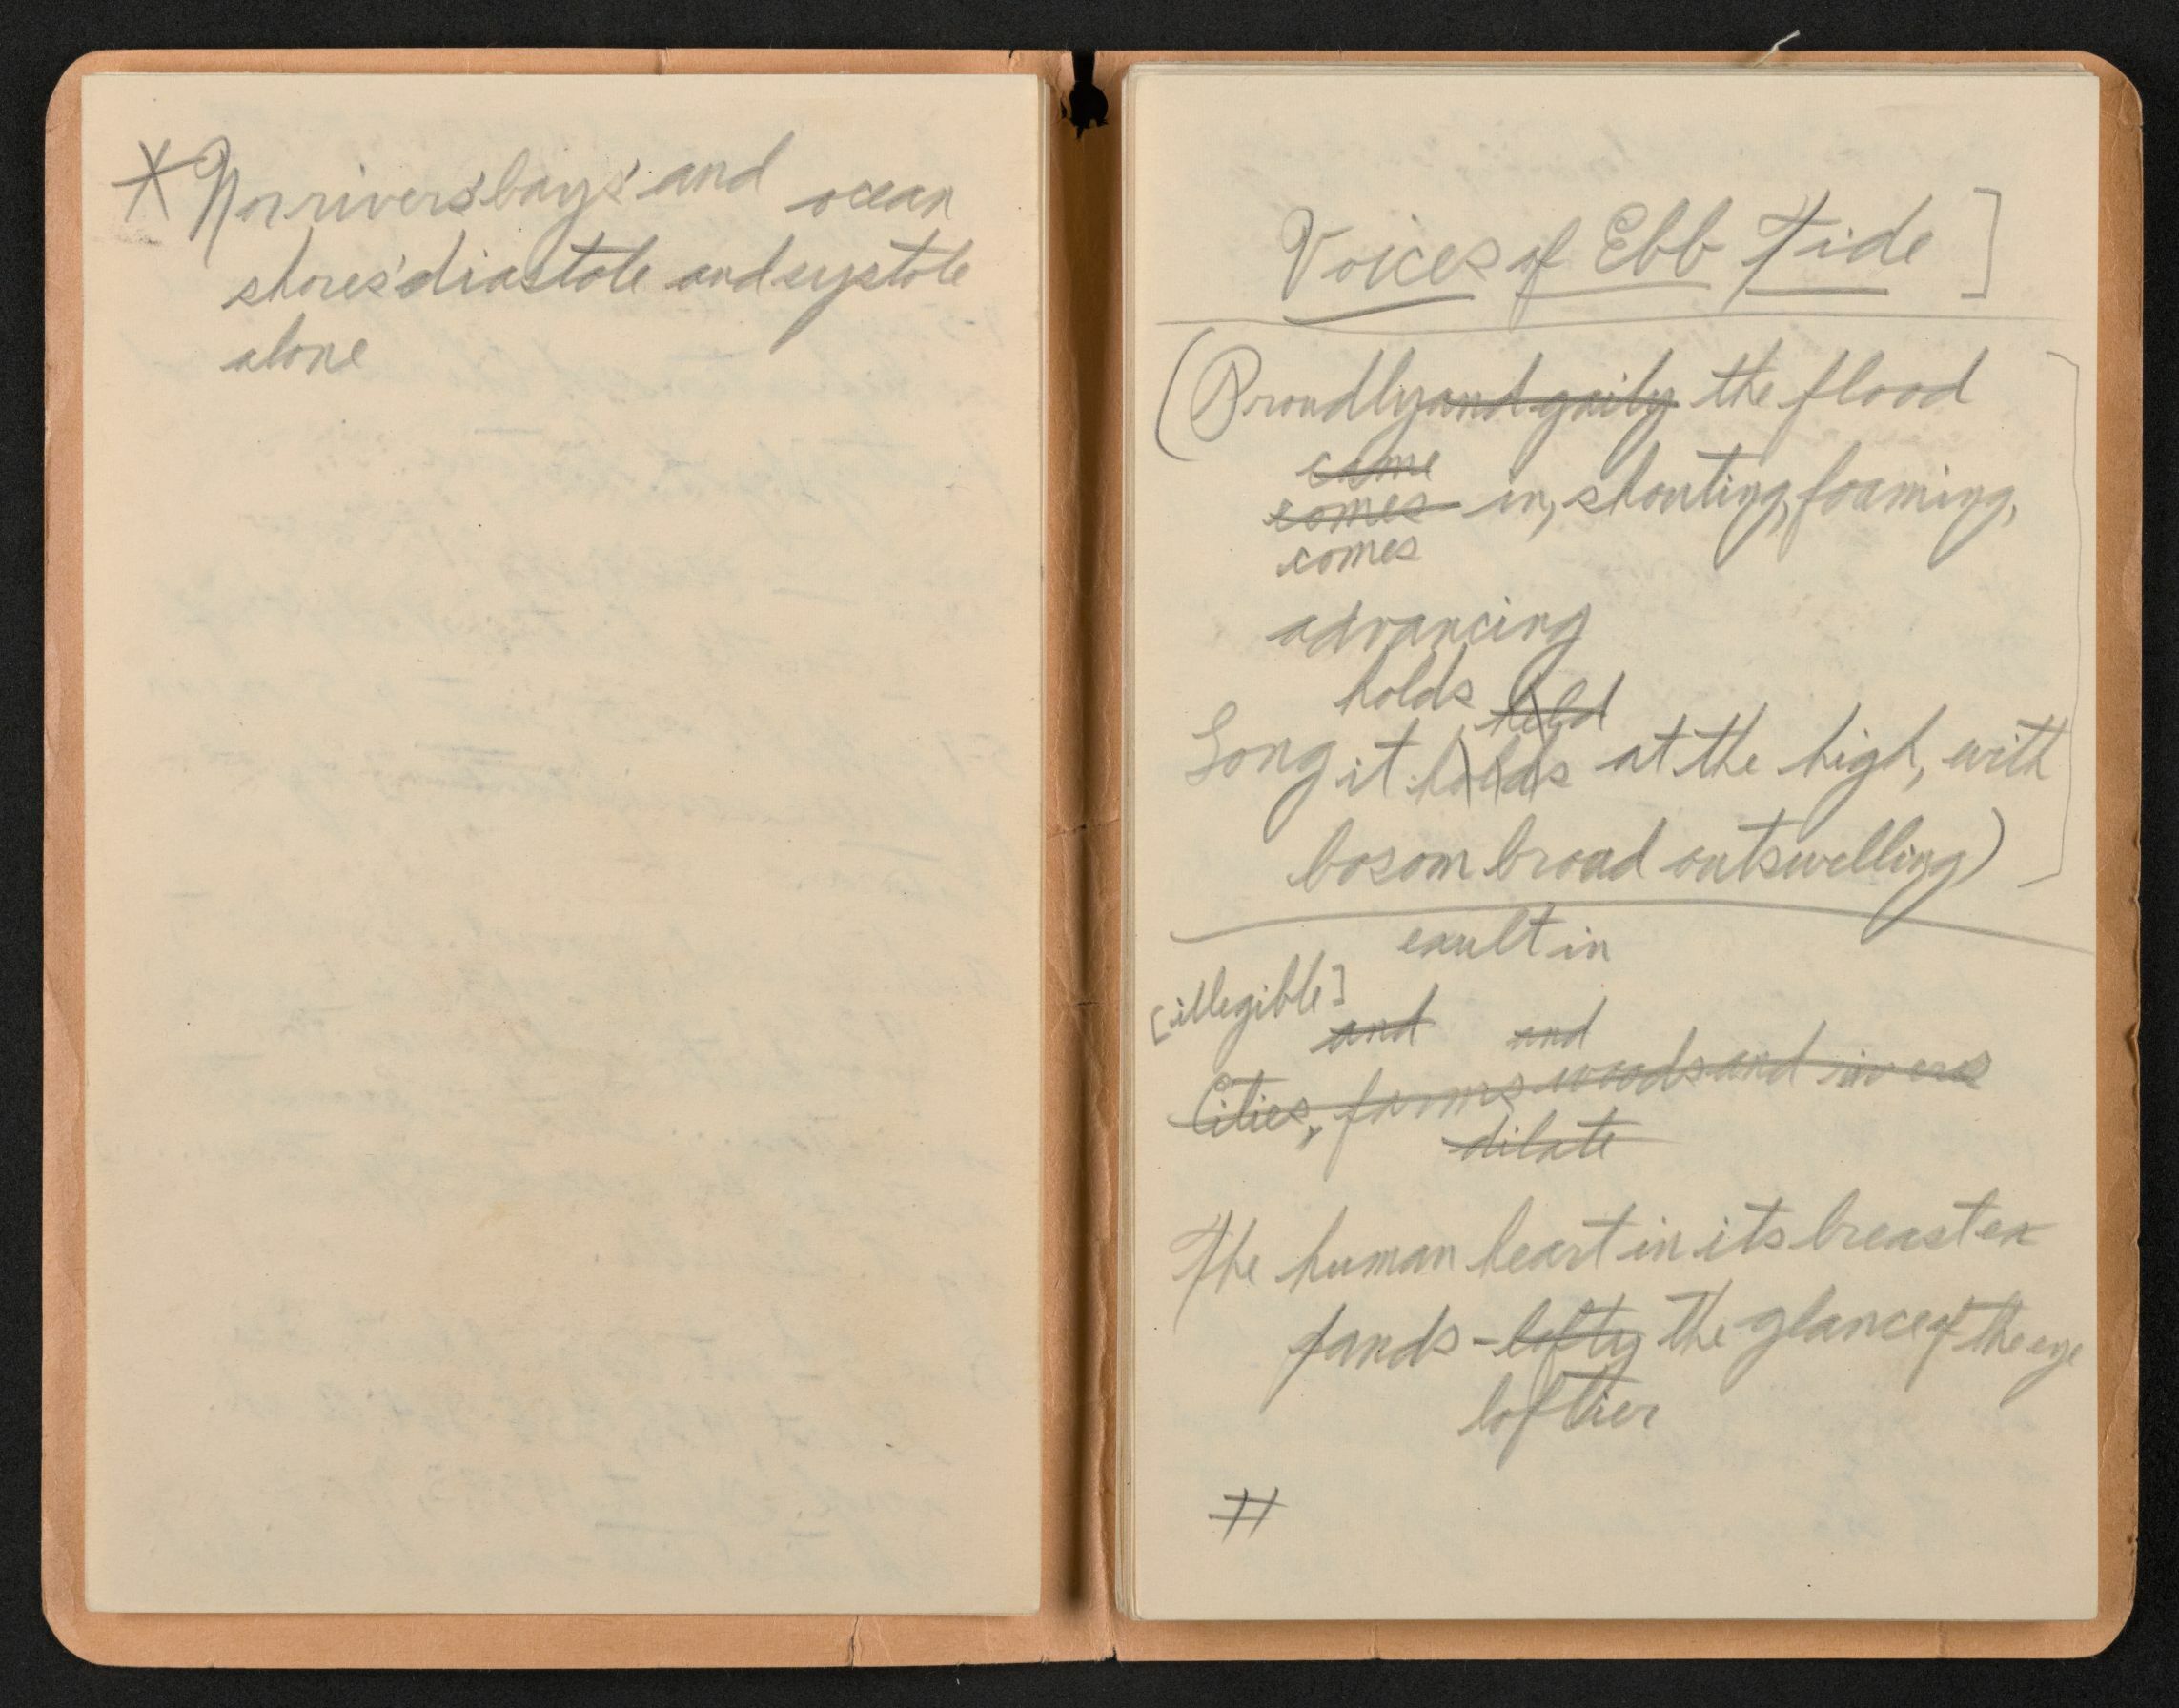 * Nor rivers' bays' and ocean
shores' diastole and systole
alone
Voices of Ebb Tide ]
(Proudly and gaily the flood
came
comes in, shouting, foaming,
comes
advancing
holds held
Long it holds at the high, with
bosom broad outswelling)
exult in
[illegible]
and and
Cities, farms woods and rivers
dilate
The human heart in its breast ex
pands - lofty the glance of the eye
loftier
#